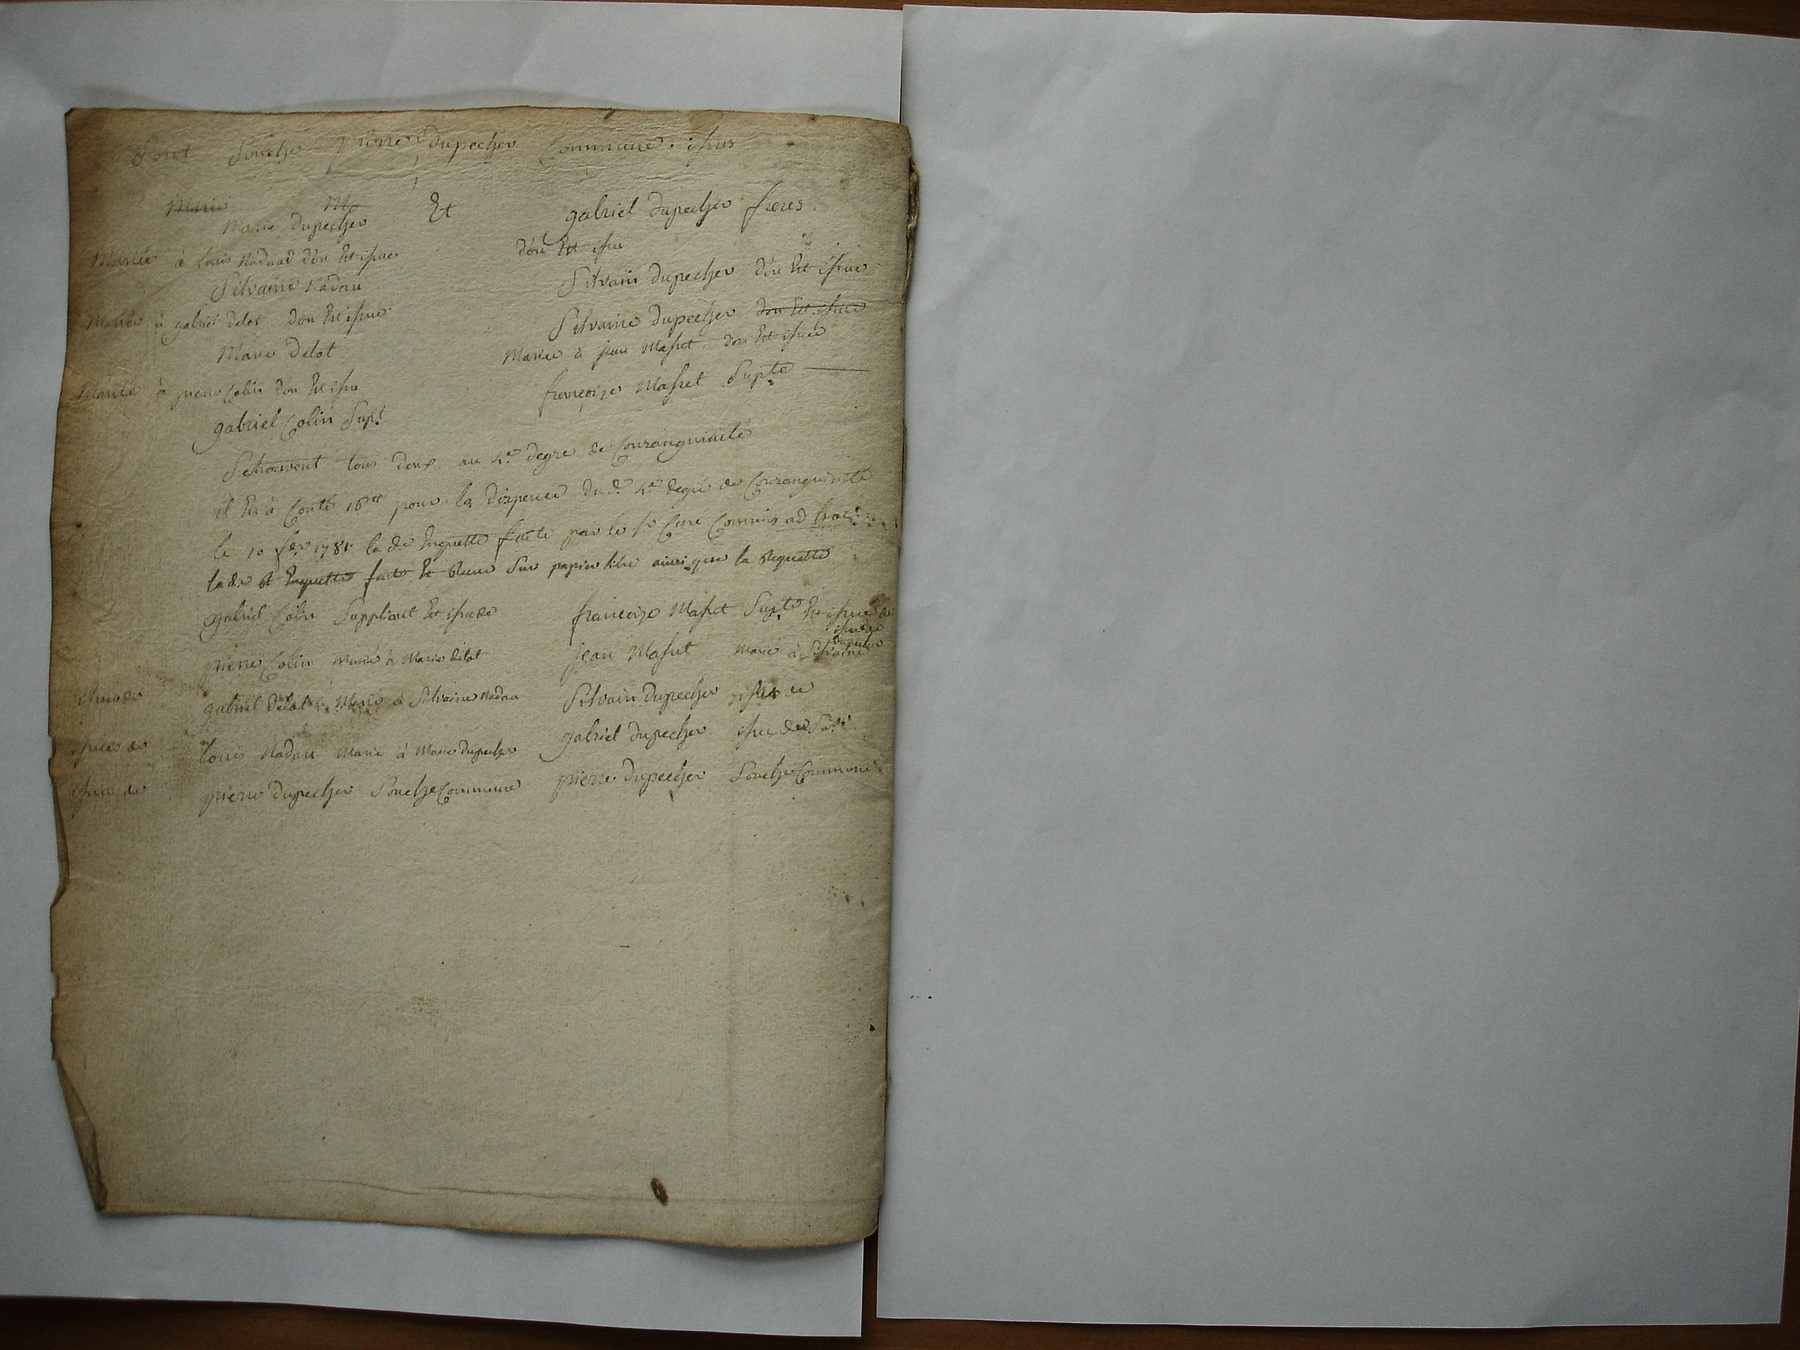 Sont Souche pierre dupecher Commune. issus
Marie M
Marie dupecher Et gabriel dupecher freres
Mariée à Louis Nadaud d'ou Est issue
d'ou Est issu
Silvaine Nadau
Silvain dupecher d'ou Est issue
Mariée à gabriel delot d'ou Est issue
Silvaine dupecher dou Est issue
Marie Delot
Mariée à jean Masset dou Est issue
Mariée à pierre Colin dou Est issu
françoise Masset Supte
gabriel Colin Supt
Setrouvent tous deux au 4e degre de Consanguinité
il En à Couté 16tt pour la Dispence dud. 4e degré de Consanguinité
le 10 1781 la de Enquette faite par le Sr Curé Commis ad
lade Enquette faite Et Sur papier libre ainsi que la Requette
gabriel Colin Suppliant Est issu de
françoise Masset Supte Est issue de
pierre Colin Marié à Marie delot
jean Masset Marié à Silvaine dupecher
issue de
issue de gabriel Delot Marié à Silvaine Nadau
Silvain dupecher issu de
issue de Louis Nadau Marié à Marie dupecher
gabriel dupecher issu de
issue de pierre dupecher Souche Commune
pierre dupecher Souche Commune